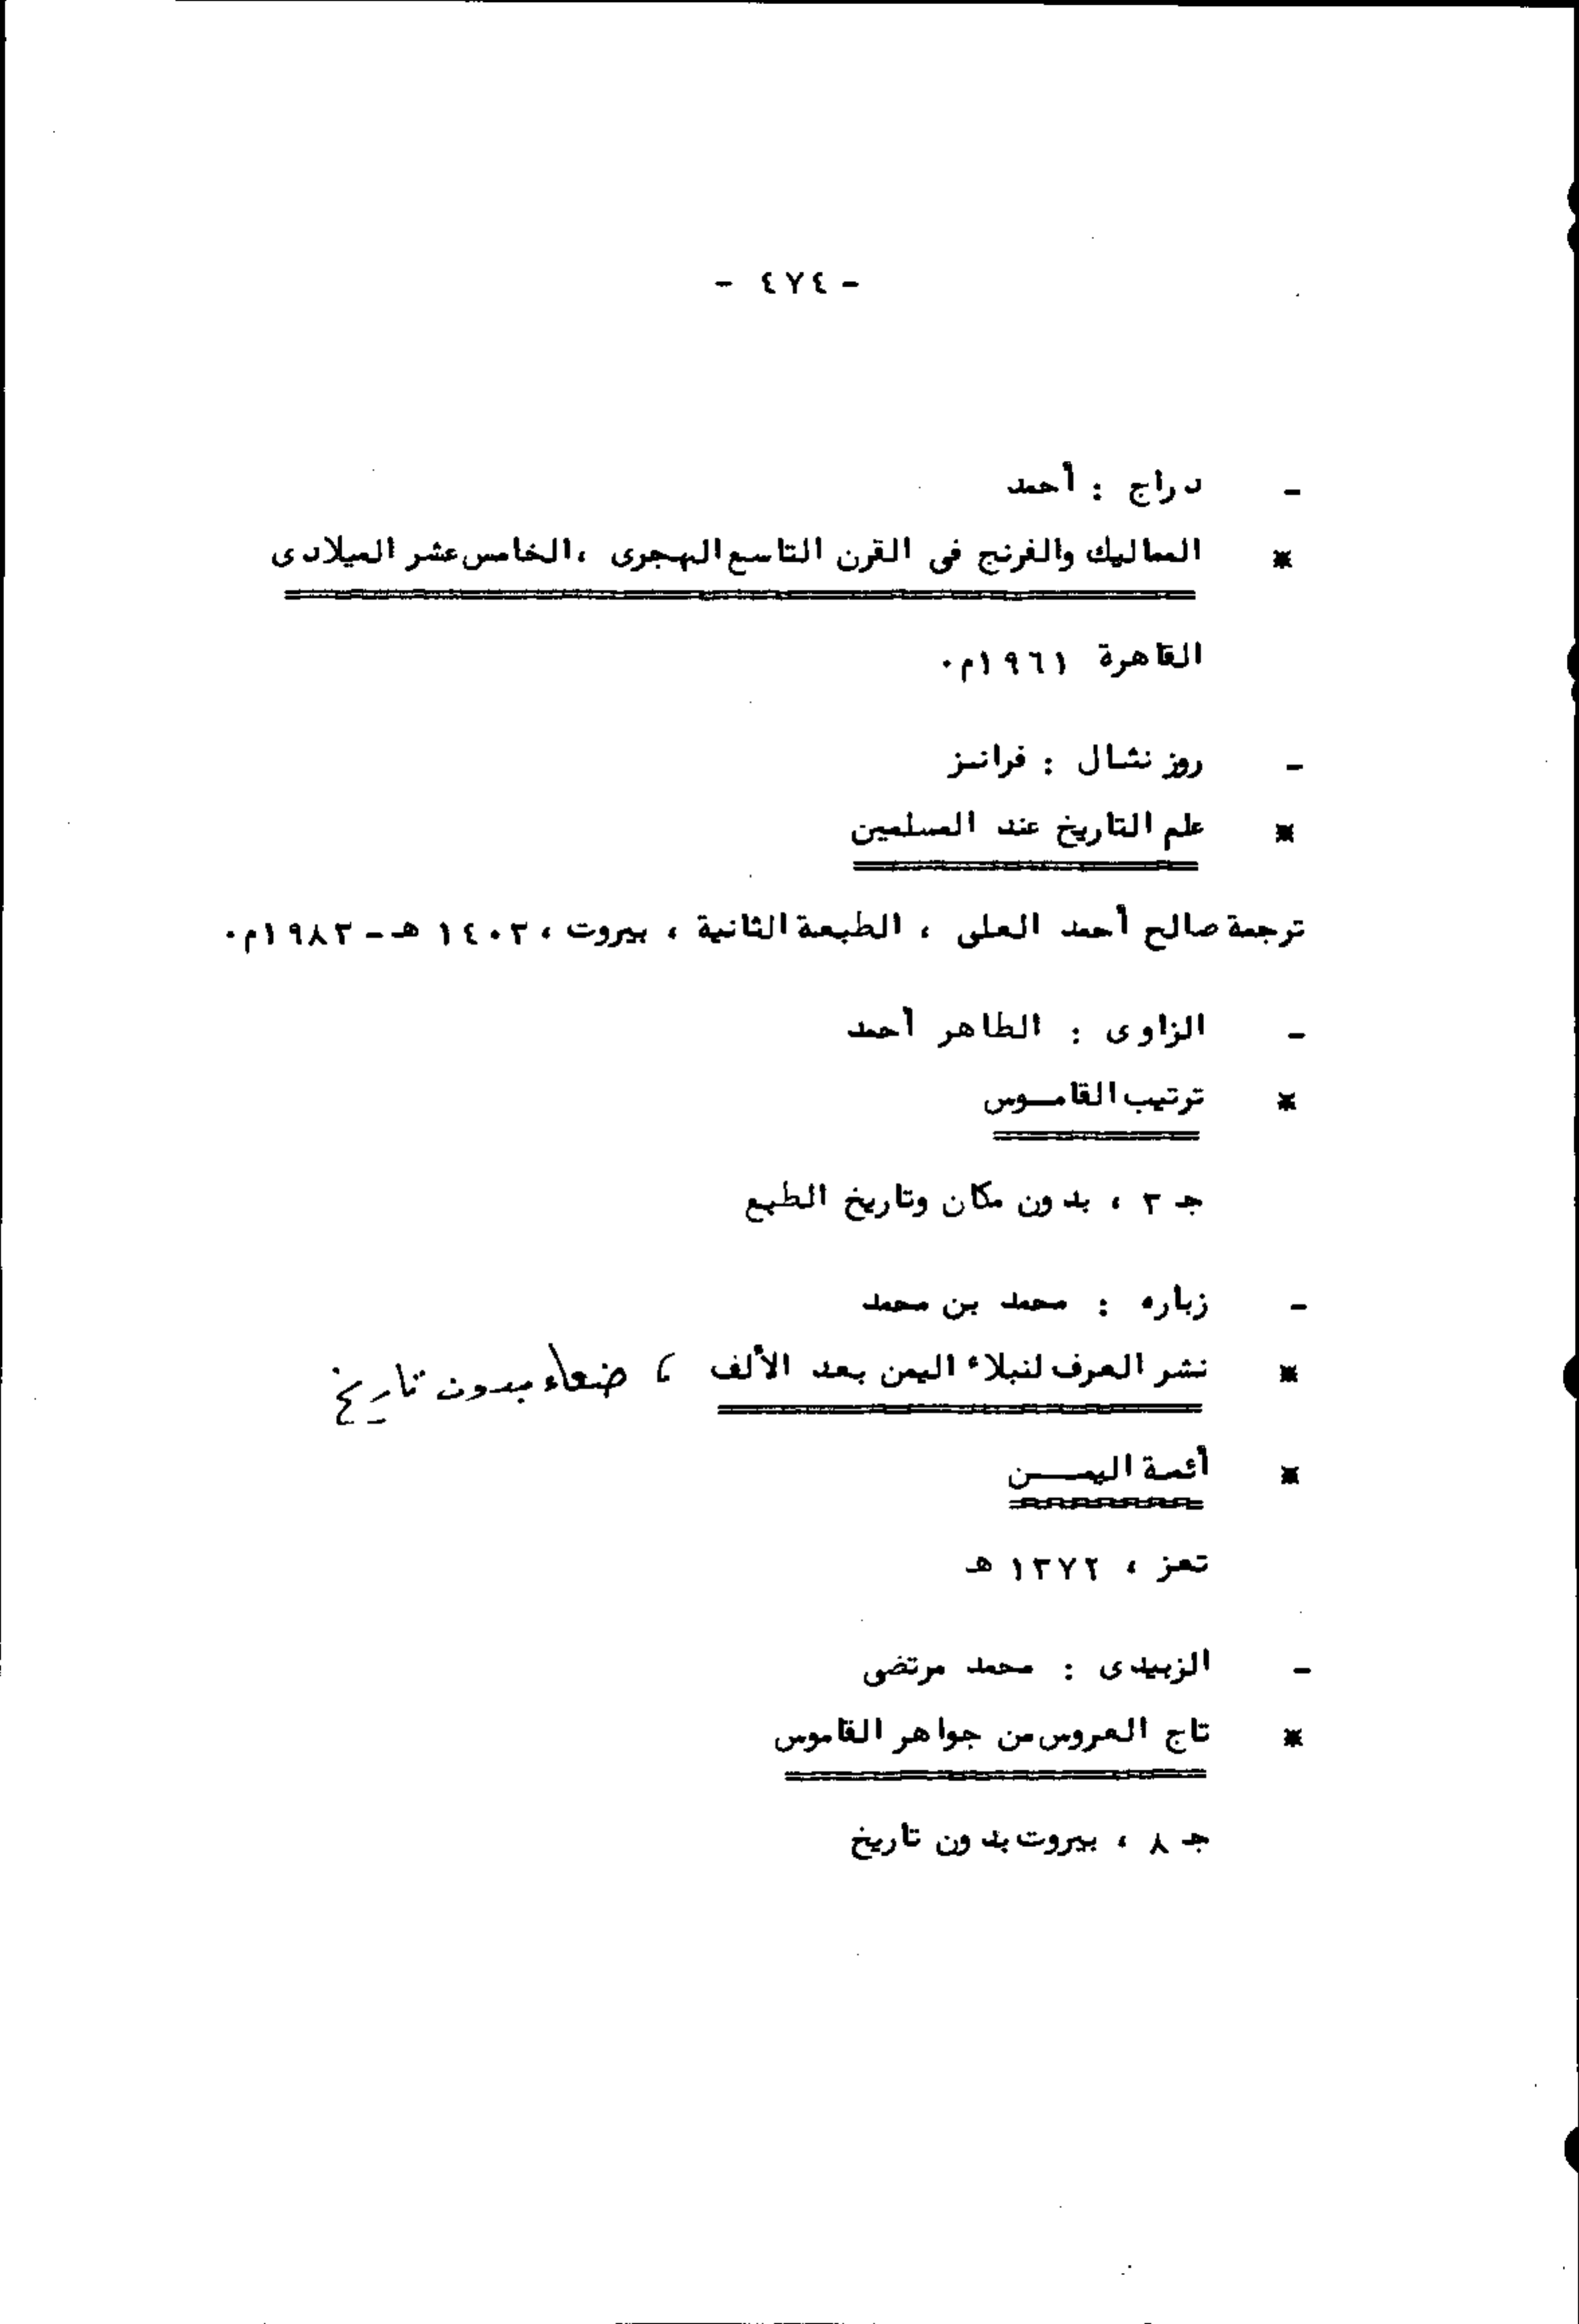 - ٤٧٤ -
- دراج : أحمد
* المماليك والفرنج فى القرن التاسع الهجرى ،الخامس عشر الميلادى
القاهرة ١٩٦١م٠
- روز نثال : فرانز
* علم التاريخ عند المسلمين
ترجمة صالح أحمد العلى ، الطبعة الثانية ، بيروت ، ١٤٠٣ هـ - ١٩٨٣م٠
- الزاوى : الطاهر أحمد
* ترتيب القامــوس
جـ ٣ ، بدون مكان وتاريخ الطبع
- زباره : محمد بن محمد
* نشر العرف لنبلاء اليمن بعد الألف ، صنعاء بدون تاريخ
* أئمة اليمـــن
تعز ، ١٣٧٢ هـ
- الزبيدى : محمد مرتضى
* تاج العروس من جواهر القاموس
جـ ٨ ، بيروت بدون تاريخ